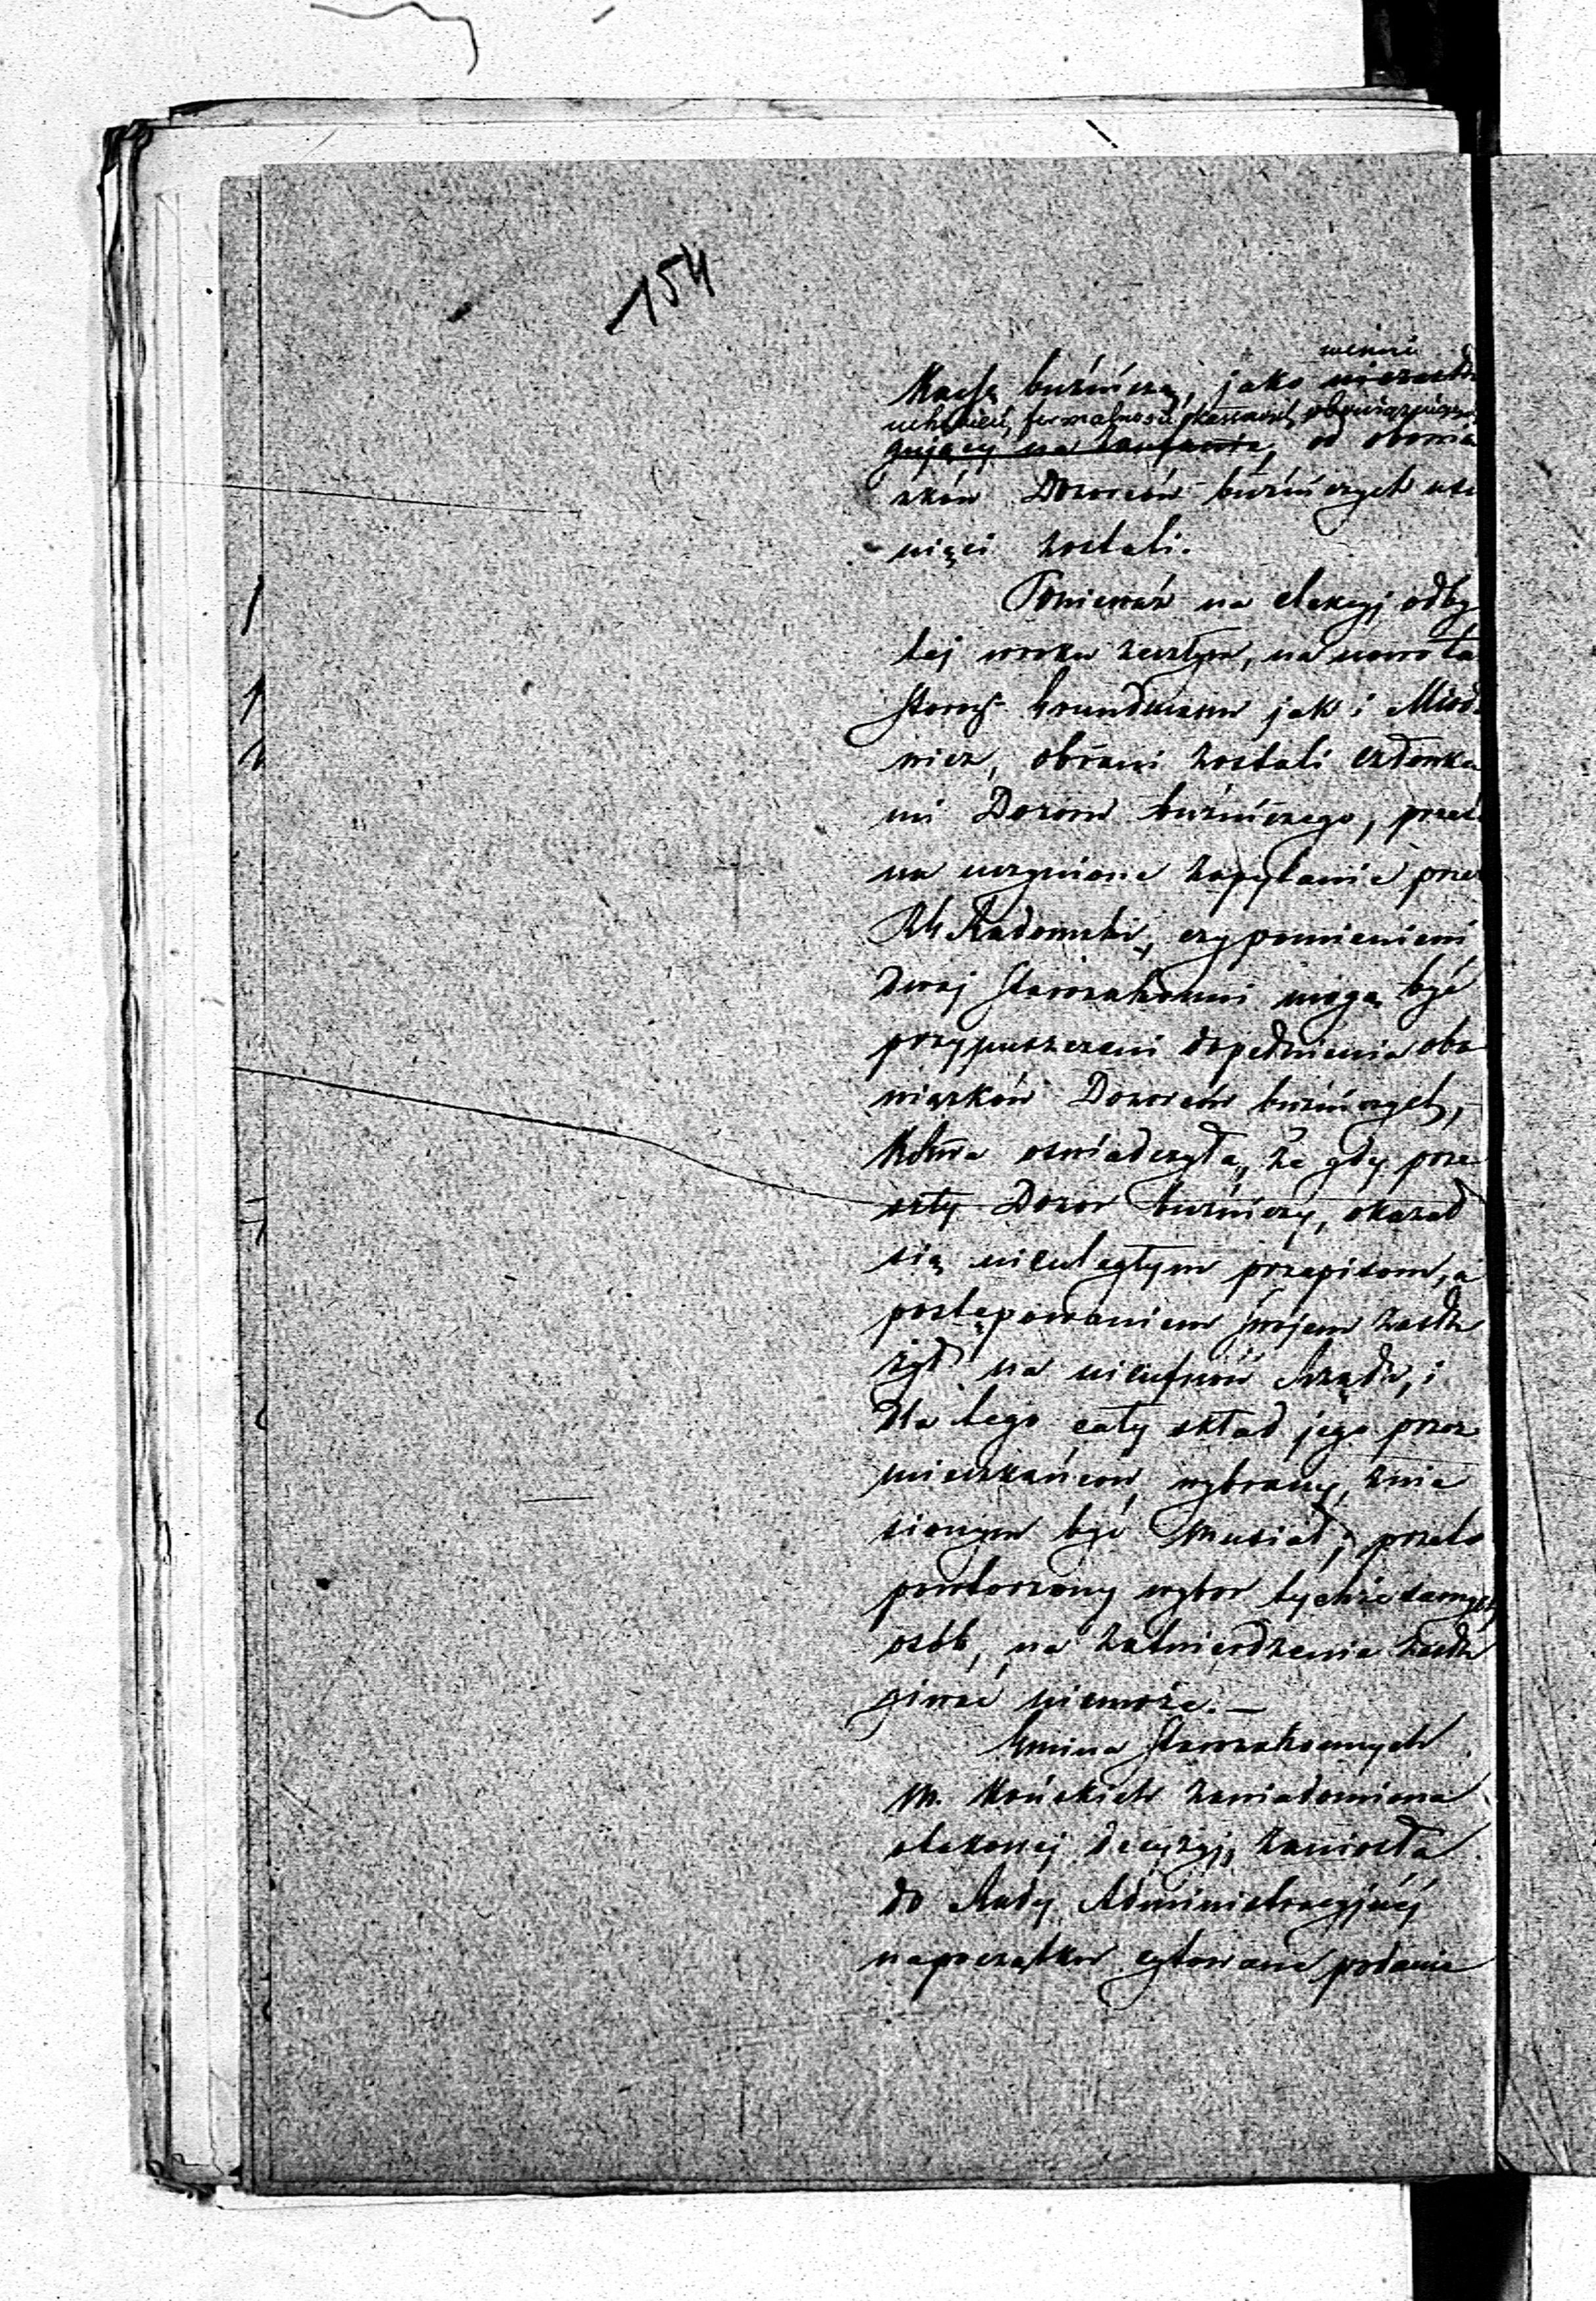 154
Kassę buźniczą, jako niezasłu
uchybieni formalności kassowych obowiązującej
gujący na zaufanie, od obowią
zków Dozorców buźniczych usu
nięci zostali.
Ponieważ na elekcyj odby
tej wroku zeszłym, na nowo ta
Storozs Grundmann jak i Miod
wicz, obrani zostali członka
mi Dozoru buźniczego, przeto
na uczynione zapytanie prze
RG Radomski, czy pomienieni
dwaj Starozakonni mogą być
przypuszczeni dopełnienia obo
wiązków Dozorców buźniczych,
Która oswiadczyła, że gdy prze
szły Dozor buźniczy, okazał
się nieuległym przepisom, a
postępowaniem swojem zasłu
żył na nieufność Rządu, i
dla tego cały skład jego przez
mieszkańców wybrany, znie
sionym być musiał; przeto
powtorzony wybor tychże samych
osób, na zatwierdzenie zasłu
giwać niemoże. —
Gmina Starozakonnych
M. Końskich zawiadomiona
otakowej decyzyj, zaniosła
do Rady Administracyjnéj
napoczątku cytowane podanie